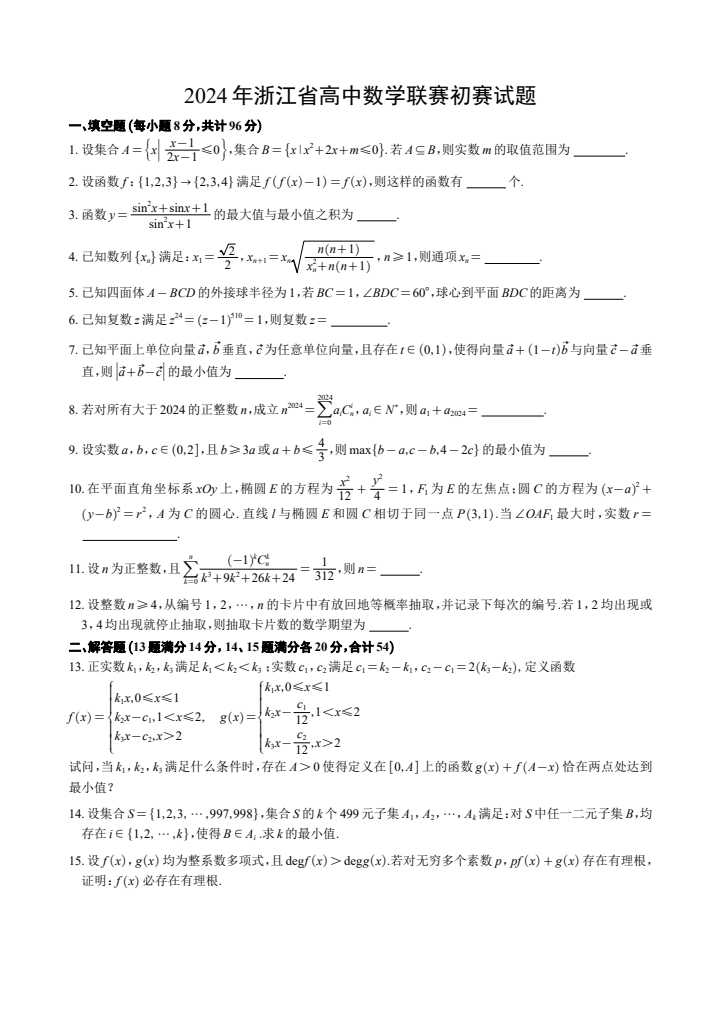 2024 年浙江省高中数学联赛初赛试题
一、填空题 (每小题 8 分，共计 96 分)
1. 设集合 A={x| (x−1)/(2x−1) ≤0}，集合 B={x|x²+2x+m≤0}. 若 A⊆B，则实数 m 的取值范围为 ______.
2. 设函数 f：{1,2,3}→{2,3,4} 满足 f(f(x)−1)=f(x)，则这样的函数有 ______ 个.
3. 函数 y= (sin²x+sinx+1)/(sin²x+1) 的最大值与最小值之积为 ______.
4. 已知数列 {xₙ} 满足：x₁= √2/2，xₙ₊₁=xₙ√(n(n+1)/(xₙ²+n(n+1)))，n≥1，则通项 xₙ= ______.
5. 已知四面体 A−BCD 的外接球半径为 1，若 BC=1，∠BDC=60°，球心到平面 BDC 的距离为 ______.
6. 已知复数 z 满足 z²⁴=(z−1)⁵¹⁰=1，则复数 z= ______.
7. 已知平面上单位向量 a⃗，b⃗ 垂直，c⃗ 为任意单位向量，且存在 t∈(0,1)，使得向量 a⃗+(1−t)b⃗ 与向量 c⃗−a⃗ 垂
直，则 |a⃗+b⃗−c⃗| 的最小值为 ______.
8. 若对所有大于 2024 的正整数 n，成立 n²⁰²⁴=∑_{i=0}^{2024} aᵢCₙⁱ，aᵢ∈N*，则 a₁+a₂₀₂₄= ______.
9. 设实数 a，b，c∈(0,2]，且 b≥3a 或 a+b≤ 4/3，则 max{b−a,c−b,4−2c} 的最小值为 ______.
10. 在平面直角坐标系 xOy 上，椭圆 E 的方程为 x²/12 + y²/4 =1，F₁ 为 E 的左焦点；圆 C 的方程为 (x−a)²+
(y−b)²=r²，A 为 C 的圆心. 直线 l 与椭圆 E 和圆 C 相切于同一点 P(3,1). 当 ∠OAF₁ 最大时，实数 r=
______.
11. 设 n 为正整数，且 ∑_{k=0}^{n} (−1)ᵏCₙᵏ/(k³+9k²+26k+24) = 1/312，则 n= ______.
12. 设整数 n≥4，从编号 1，2，⋯，n 的卡片中有放回地等概率抽取，并记录下每次的编号. 若 1，2 均出现或
3，4 均出现就停止抽取，则抽取卡片数的数学期望为 ______.
二、解答题 (13 题满分 14 分，14、15 题满分各 20 分，合计 54)
13. 正实数 k₁，k₂，k₃ 满足 k₁<k₂<k₃；实数 c₁，c₂ 满足 c₁=k₂−k₁，c₂−c₁=2(k₃−k₂)，定义函数
f(x)={k₁x,0≤x≤1
k₂x−c₁,1<x≤2,
k₃x−c₂,x>2
g(x)={k₁x,0≤x≤1
k₂x− c₁/12,1<x≤2
k₃x− c₂/12,x>2
试问，当 k₁，k₂，k₃ 满足什么条件时，存在 A>0 使得定义在 [0,A] 上的函数 g(x)+f(A−x) 恰在两点处达到
最小值?
14. 设集合 S={1,2,3, ⋯,997,998}，集合 S 的 k 个 499 元子集 A₁，A₂，⋯，Aₖ 满足：对 S 中任一二元子集 B，均
存在 i∈{1,2, ⋯,k}，使得 B∈Aᵢ .求 k 的最小值.
15. 设 f(x)，g(x) 均为整系数多项式，且 degf(x)>degg(x). 若对无穷多个素数 p，pf(x)+g(x) 存在有理根，
证明：f(x) 必存在有理根.